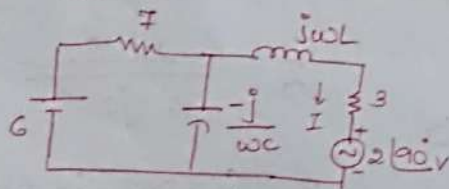 7
jωL
-j
ωc
6
↓
I
3
+
2∠90° v
-